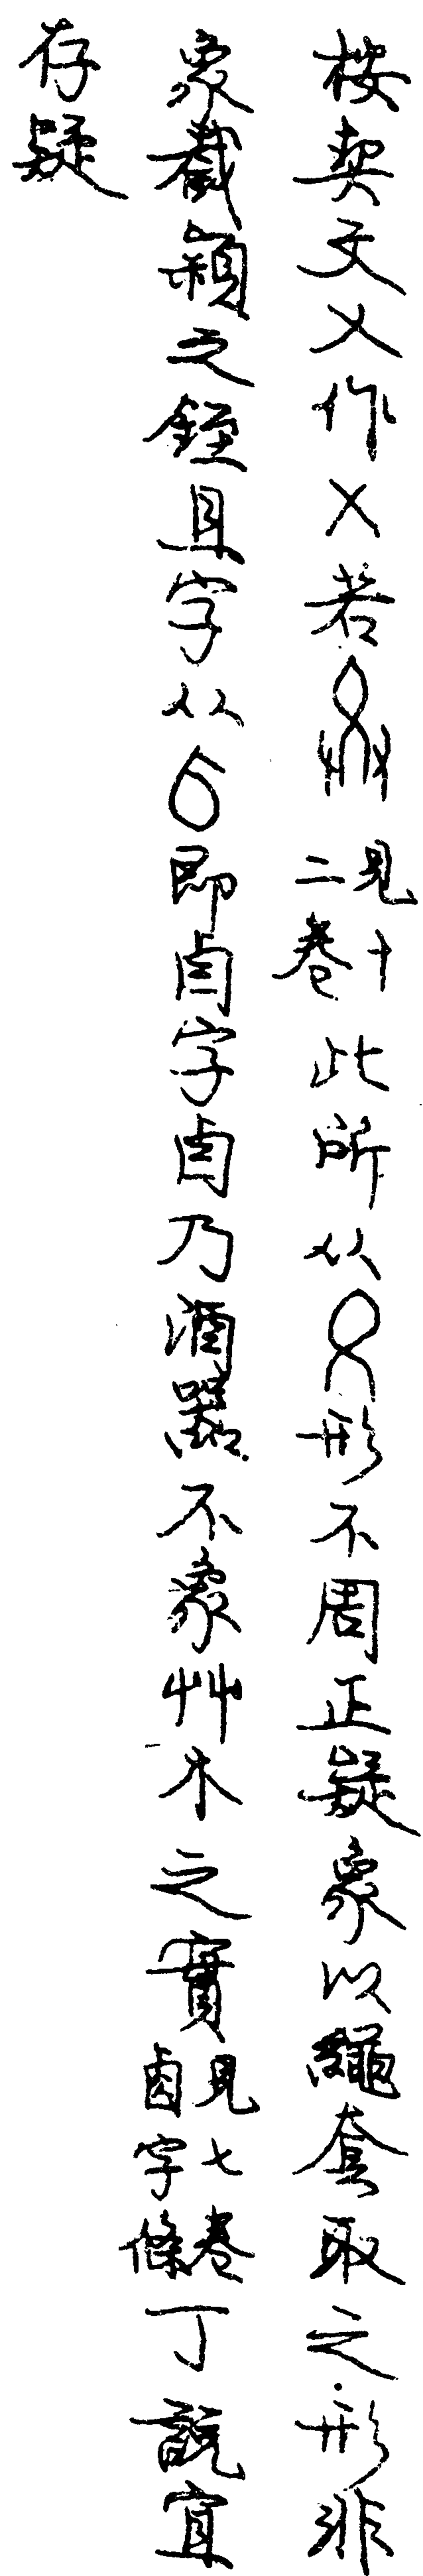 按契文乂作㐅若見十二卷此所从形不周正疑象以繩套取之形非
象截穎之銍且字从即卣字卣乃酒器不象艸木之實見七卷卣字條丁說宜
存疑